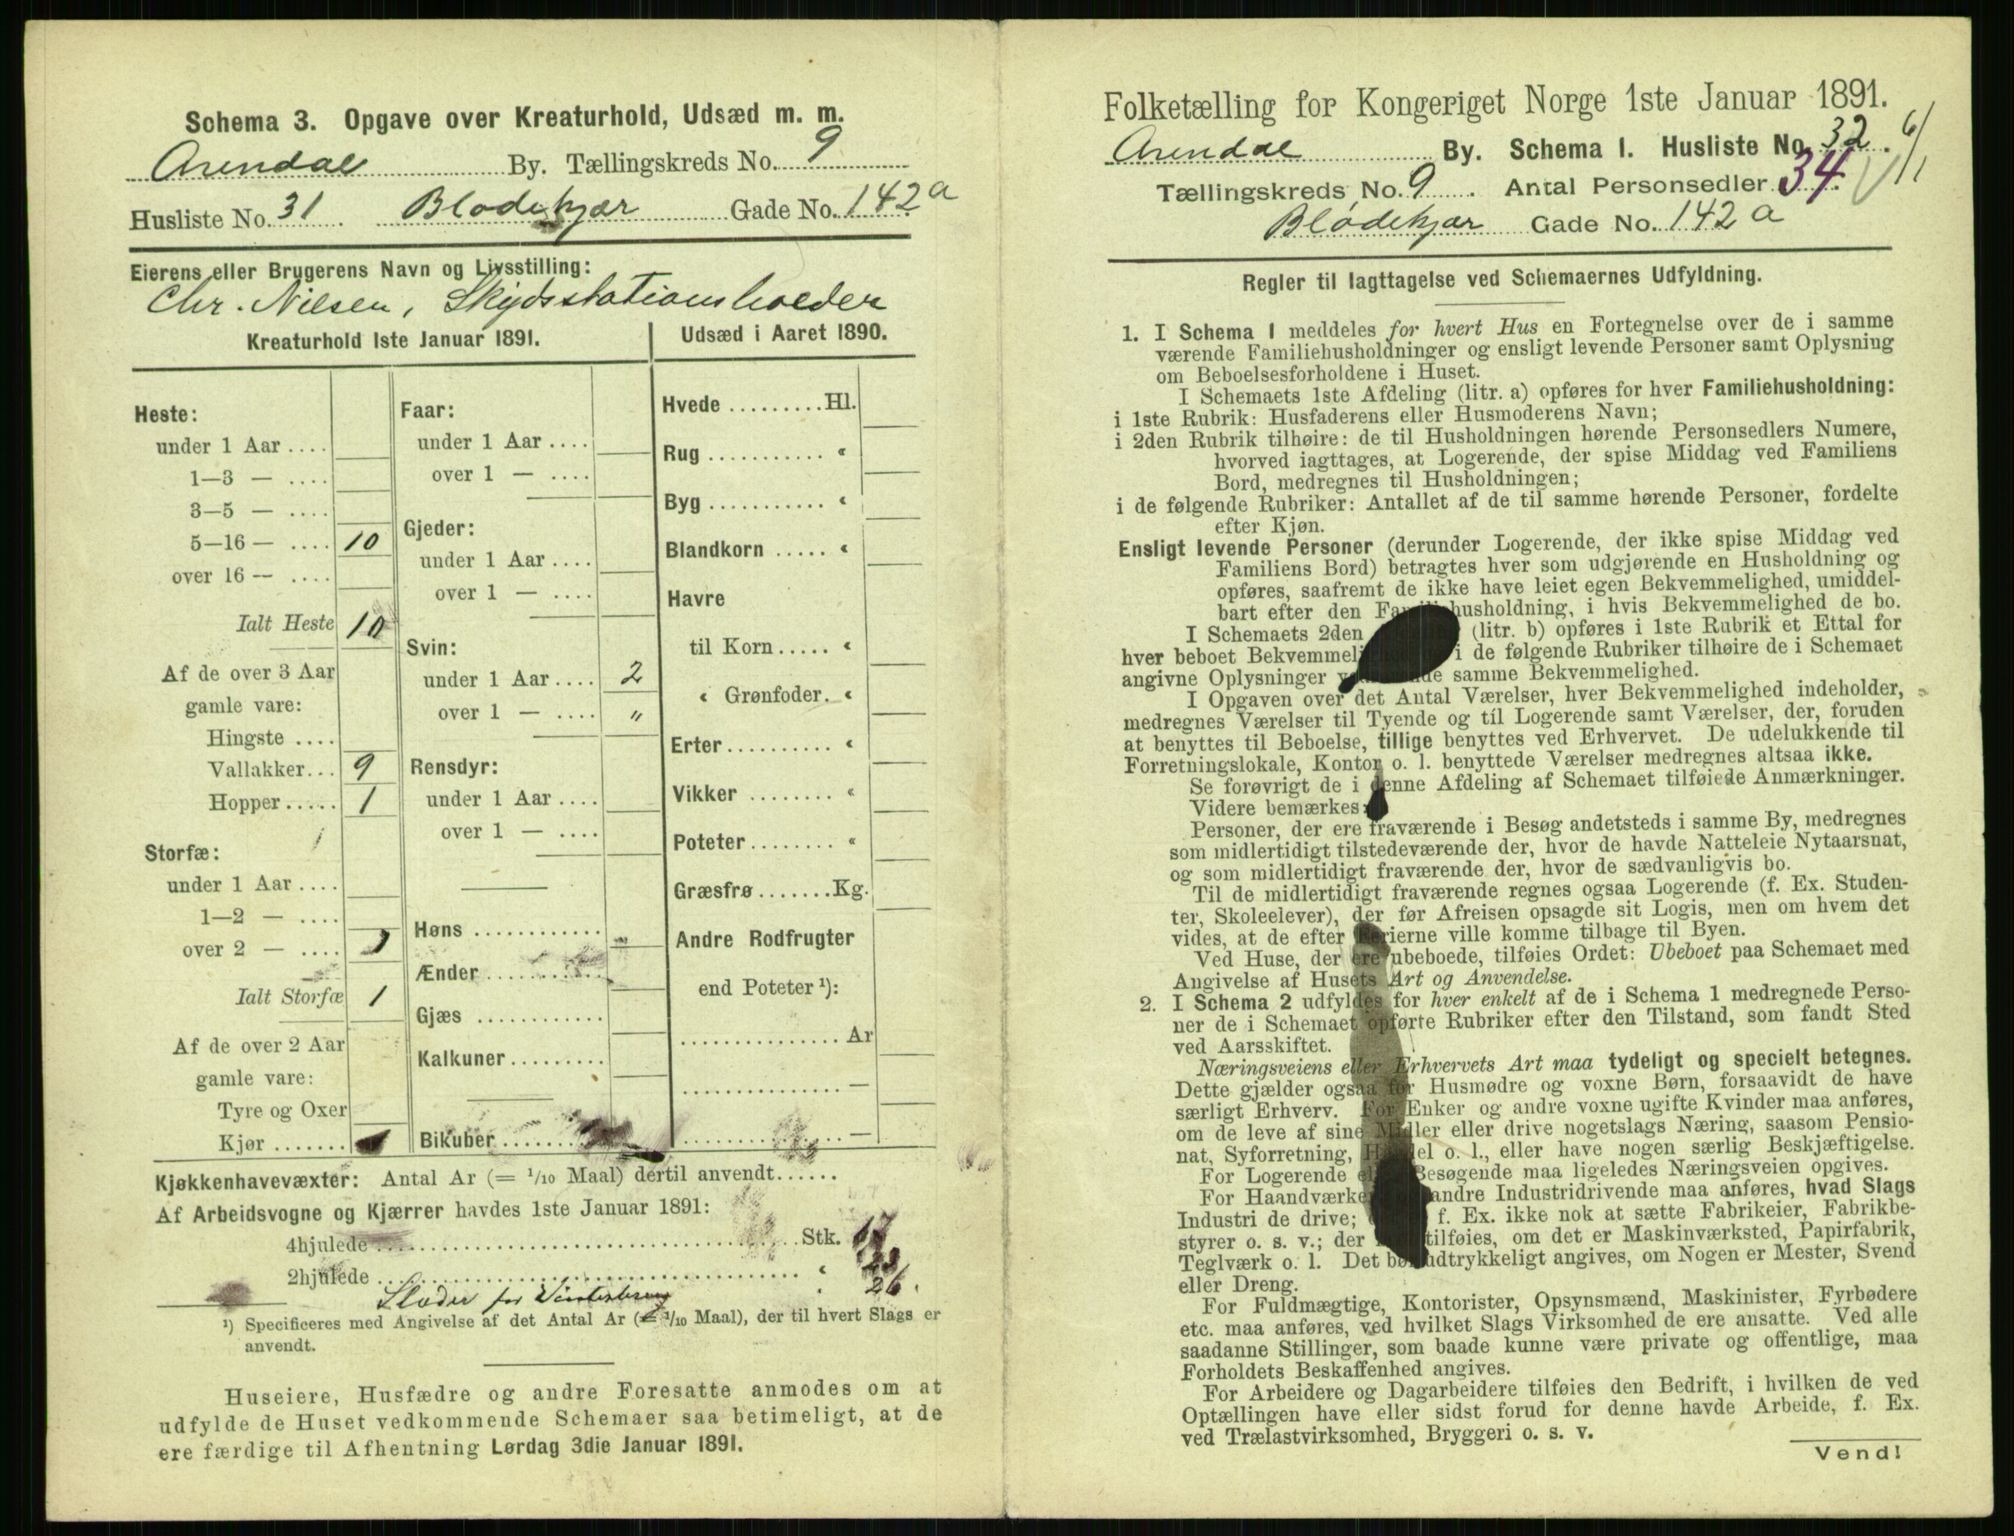 Schema 3. Opgave over Kreaturhold, Udsæd m. m.
Arendal By. Tællingskreds No. 9
Husliste No. 31 Blødekjær Gade No. 142 a
Eierens eller Brugerens Navn og Livsstilling:
Chr. Nilsen, Skydsstationsholder
Kreaturhold 1ste Januar 1891.
Heste:
under 1 Aar ....
1—3 — ....
3—5 — ....
5—16 — .... 10
over 16 — ....
Ialt Heste 10
Af de over 3 Aar
gamle vare:
Hingste ....
Vallakker... 9
Hopper..... 1
Storfæ:
under 1 Aar ....
1—2 — ....
over 2 — .... 1
Ialt Storfæ 1
Af de over 2 Aar
gamle vare:
Tyre og Oxer
Kjør.......
Faar:
under 1 Aar ....
over 1 — ....
Gjeder:
under 1 Aar ....
over 1 — ....
Svin:
under 1 Aar .... 2
over 1 — .... "
Rensdyr:
under 1 Aar ....
over 1 — ....
Høns ............
Ænder ............
Gjæs ............
Kalkuner.........
Bikuber
Udsæd i Aaret 1890.
Hvede .........Hl.
Rug ........... «
Byg ........... «
Blandkorn ..... «
Havre
til Korn..... «
« Grønfoder. «
Erter.......... «
Vikker ........ «
Poteter........ «
Græsfrø.......Kg.
Andre Rodfrugter
end Poteter ¹):
............... Ar
............... —
............... —
Kjøkkenhavevæxter: Antal Ar (= 1/10 Maal) dertil anvendt......
Af Arbeidsvogne og Kjærrer havdes 1ste Januar 1891:
4hjulede .......... Stk. 17
2hjulede .......... « 23
Slæder for Vinterbrug 26.
¹) Specificeres med Angivelse af det Antal Ar (= 1/10 Maal), der til hvert Slags er
anvendt.
Huseiere, Husfædre og andre Foresatte anmodes om at
udfylde de Huset vedkommende Schemaer saa betimeligt, at de
ere færdige til Afhentning Lørdag 3die Januar 1891.
Folketælling for Kongeriget Norge 1ste Januar 1891.
Arendal By. Schema 1. Husliste No. 32. 6/1
Tællingskreds No. 9. Antal Personsedler 34.
Blødekjær Gade No. 142 a
Regler til Iagttagelse ved Schemaernes Udfyldning.
1. I Schema 1 meddeles for hvert Hus en Fortegnelse over de i samme
værende Familiehusholdninger og ensligt levende Personer samt Oplysning
om Beboelsesforholdene i Huset.
I Schemaets 1ste Afdeling (litr. a) opføres for hver Familiehusholdning:
i 1ste Rubrik: Husfaderens eller Husmoderens Navn;
i 2den Rubrik tilhøire: de til Husholdningen hørende Personsedlers Numere,
hvorved iagttages, at Logerende, der spise Middag ved Familiens
Bord, medregnes til Husholdningen;
i de følgende Rubriker: Antallet af de til samme hørende Personer, fordelte
efter Kjøn.
Ensligt levende Personer (derunder Logerende, der ikke spise Middag ved
Familiens Bord) betragtes hver som udgjørende en Husholdning og
opføres, saafremt de ikke have leiet egen Bekvemmelighed, umiddel-
bart efter den Familiehusholdning, i hvis Bekvemmelighed de bo.
I Schemaets 2den (litr. b) opføres i 1ste Rubrik et Ettal for
hver beboet Bekvemmelighed i de følgende Rubriker tilhøire de i Schemaet
angivne Oplysninger vedkommende samme Bekvemmelighed.
I Opgaven over det Antal Værelser, hver Bekvemmelighed indeholder,
medregnes Værelser til Tyende og til Logerende samt Værelser, der, foruden
at benyttes til Beboelse, tillige benyttes ved Erhvervet. De udelukkende til
Forretningslokale, Kontor o. l. benyttede Værelser medregnes altsaa ikke.
Se forøvrigt de i denne Afdeling af Schemaet tilføiede Anmærkninger.
Videre bemærkes:
Personer, der ere fraværende i Besøg andetsteds i samme By, medregnes
som midlertidigt tilstedeværende der, hvor de havde Natteleie Nytaarsnat,
og som midlertidigt fraværende der, hvor de sædvanligvis bo.
Til de midlertidigt fraværende regnes ogsaa Logerende (f. Ex. Studen-
ter, Skoleelever), der før Afreisen opsagde sit Logis, men om hvem det
vides, at de efter Ferierne ville komme tilbage til Byen.
Ved Huse, der ere ubeboede, tilføies Ordet: Ubeboet paa Schemaet med
Angivelse af Husets Art og Anvendelse.
2. I Schema 2 udfyldes for hver enkelt af de i Schema 1 medregnede Perso-
ner de i Schemaet opførte Rubriker efter den Tilstand, som fandt Sted
ved Aarsskiftet.
Næringsveiens eller Erhvervets Art maa tydeligt og specielt betegnes.
Dette gjælder ogsaa for Husmødre og voxne Børn, forsaavidt de have
særligt Erhverv. For Enker og andre voxne ugifte Kvinder maa anføres,
om de leve af sine Midler eller drive nogetslags Næring, saasom Pensio-
nat, Syforretning, Handel o. l., eller have nogen særlig Beskjæftigelse.
For Logerende eller Besøgende maa ligeledes Næringsveien opgives.
For Haandværkere og andre Industridrivende maa anføres, hvad Slags
Industri de drive; f. Ex. ikke nok at sætte Fabrikeier, Fabrikbe-
styrer o. s. v.; der tilføies, om det er Maskinværksted, Papirfabrik,
Teglværk o. l. Det bør udtrykkeligt angives, om Nogen er Mester, Svend
eller Dreng.
For Fuldmægtige, Kontorister, Opsynsmænd, Maskinister, Fyrbødere
etc. maa anføres, ved hvilket Slags Virksomhed de ere ansatte. Ved alle
saadanne Stillinger, som baade kunne være private og offentlige, maa
Forholdets Beskaffenhed angives.
For Arbeidere og Dagarbeidere tilføies den Bedrift, i hvilken de ved
Optællingen have eller sidst forud for denne havde Arbeide, f. Ex.
ved Trælastvirksomhed, Bryggeri o. s. v.
Vend!